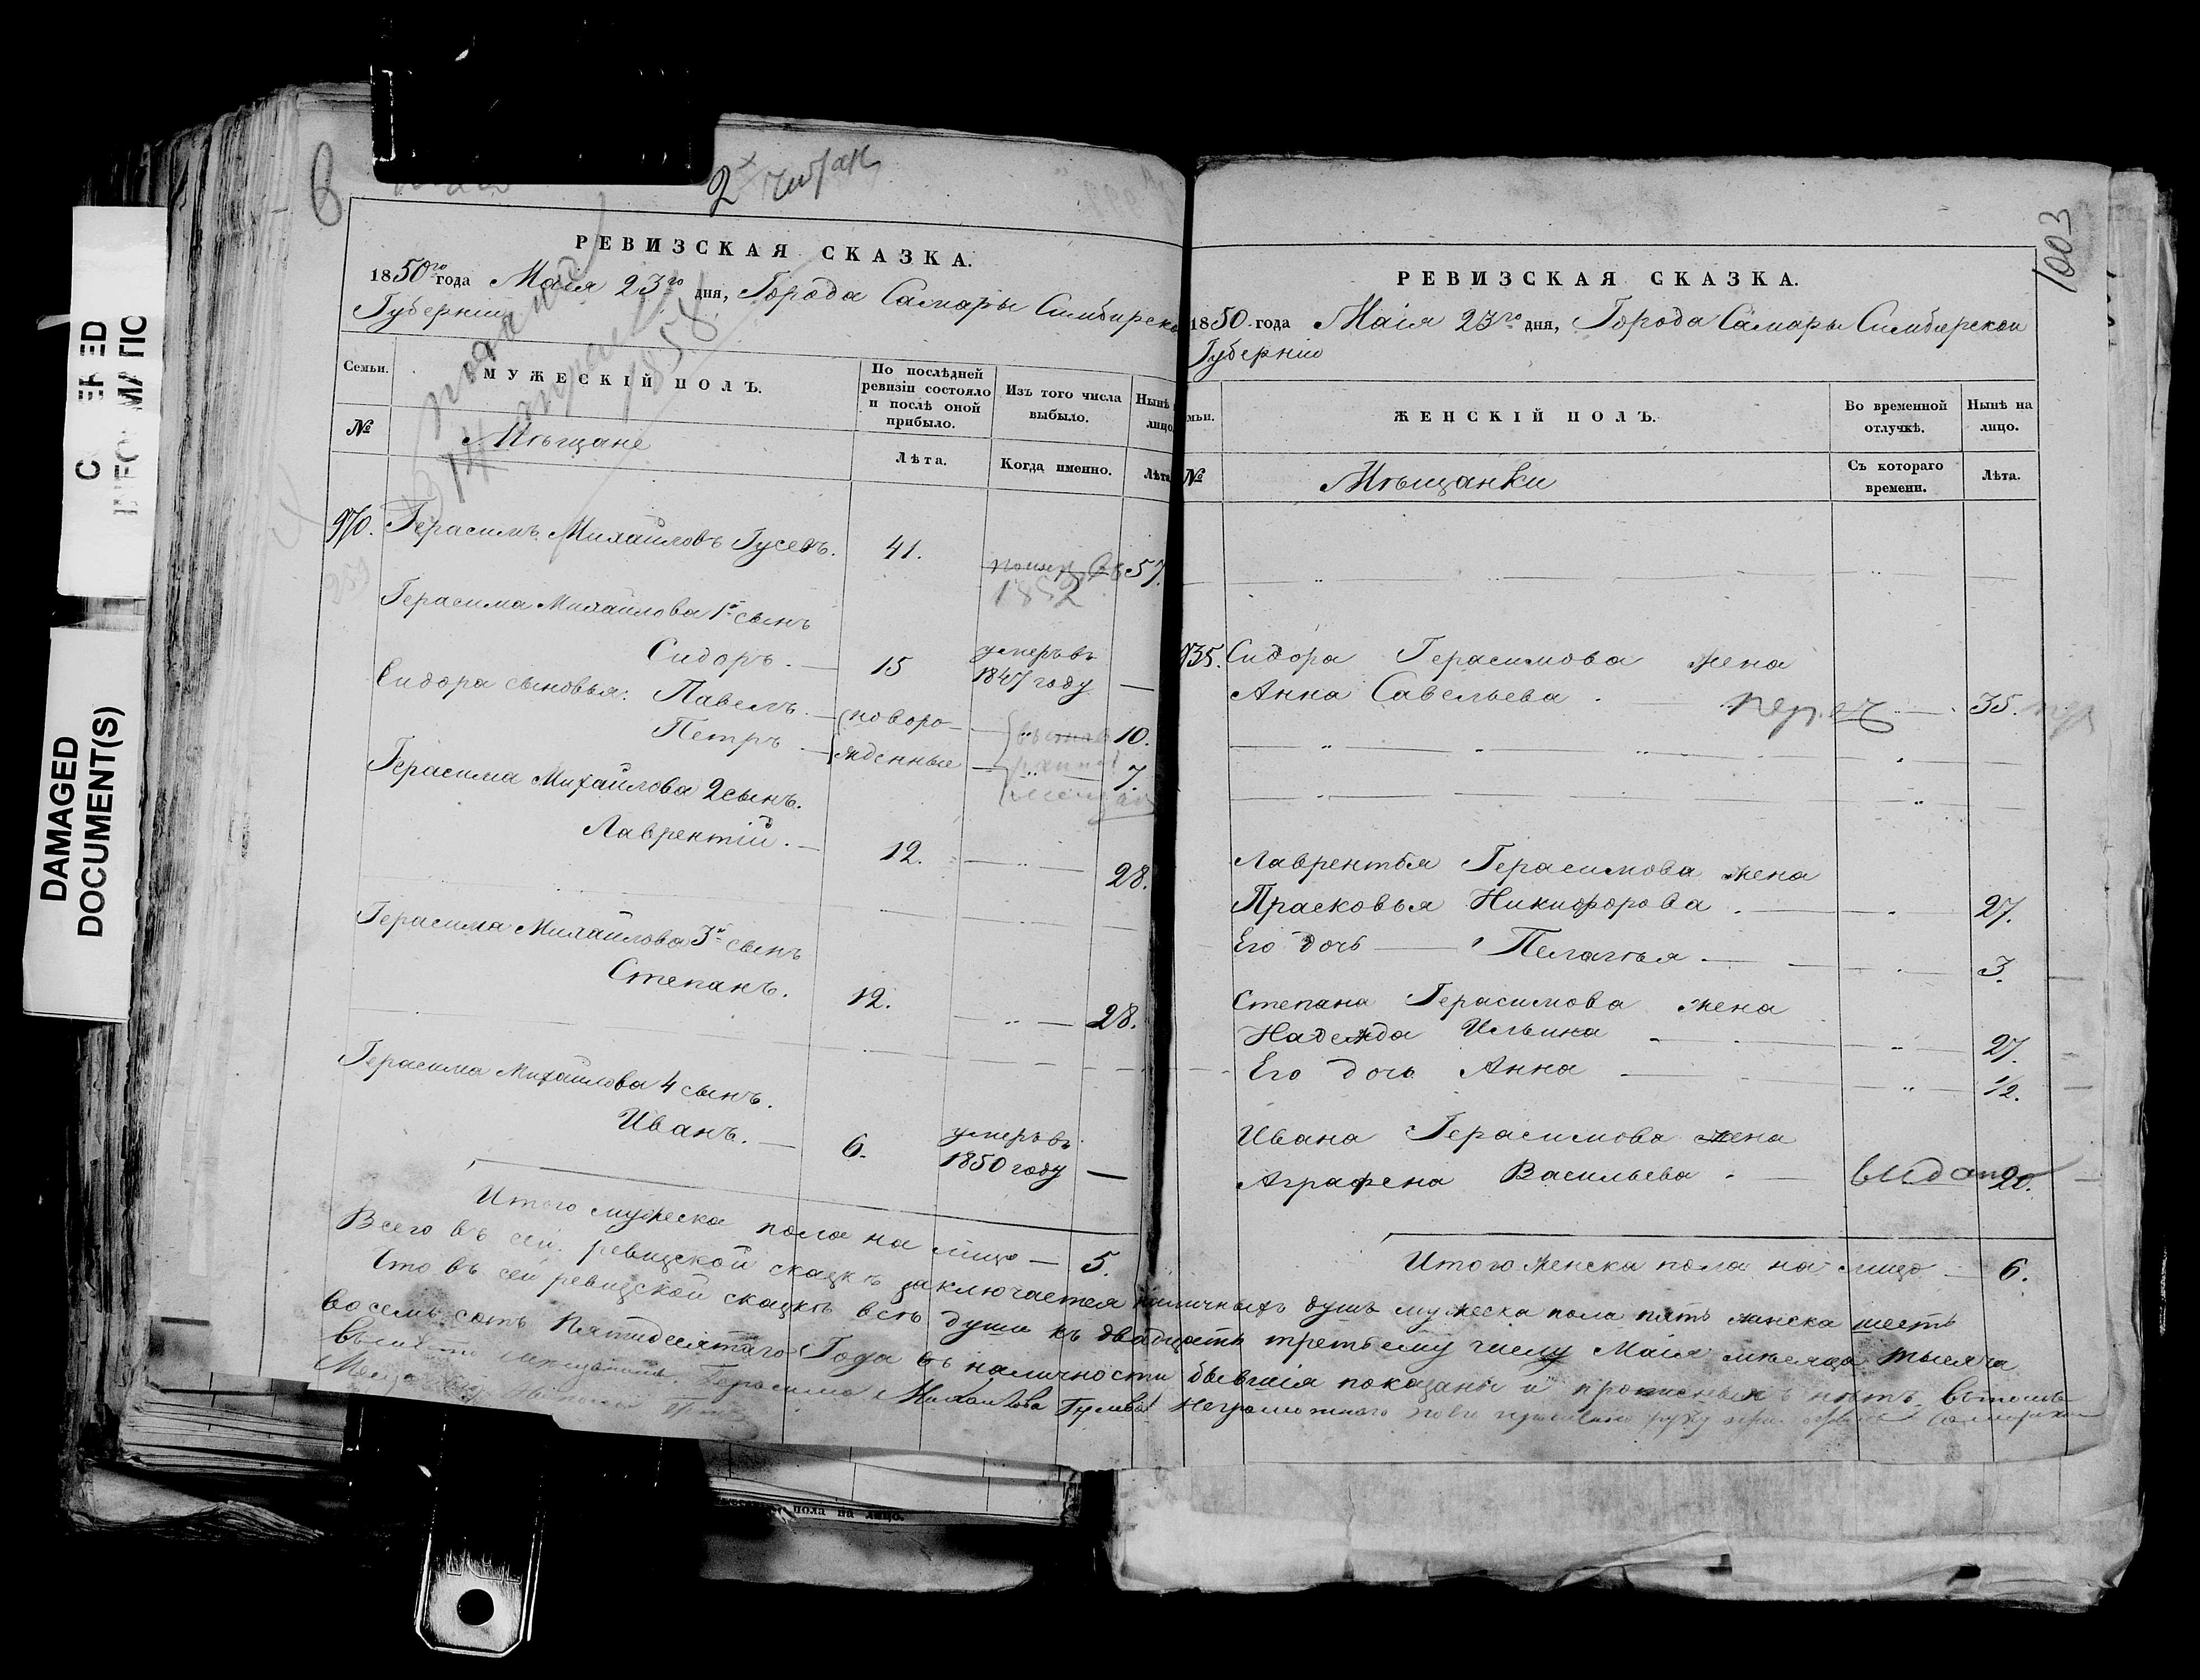 COVERED
INFORMATION
DAMAGED
DOCUMENT(S)
6
РЕВИЗСКАЯ СКАЗКА.
1850го года Маія 23го дня, Города Самары Симбирско
Губерніи
Семьи.
МУЖЕСКІЙ ПОЛЪ.
По послѣдней ревизіи состояло и послѣ оной прибыло.
Изъ того числа выбыло.
Нынѣ
лицо
№
Мѣщане
Лѣта.
Когда именно.
Лѣта
970. Герасимъ Михайловъ Гусевъ. 41. 57.
1852
Герасима Михайлова 1й сынъ
Сидоръ. — 15 умеръ въ 1847 году —
Сидора сыновья: Павелъ. — новоро- 10.
Петръ — жденные — 7.
Герасима Михайлова 2 сынъ.
Лаврентій. — 12. — „ — 28.
Герасима Михайлова 3й сынъ
Степанъ. 12. — „ — 28.
Герасима Михайлова 4 сынъ.
Иванъ. — 6. умеръ въ 1850 году —
Итого мужеска пола на лицо — 5.
1003
РЕВИЗСКАЯ СКАЗКА.
1850 года Маія 23го дня, Города Самары Симбирской
Губерніи
мьи.
ЖЕНСКІЙ ПОЛЪ.
Во временной отлучкѣ.
Нынѣ на лицо.
№
Мѣщанки
Съ котораго времени.
Лѣта.
935. Сидора Герасимова жена
Анна Савельева . — 35.
Лаврентья Герасимова жена
Прасковья Никифорова . — „ — 27.
Его дочь — Пелагѣя — 3.
Степана Герасимова жена
Надежда Ильина — „ — 27.
Его дочь Анна — „ — 1/2.
Ивана Герасимова жена
Аграфена Васильева . — выдана 20.
Итого женска пола на лицо — 6.
Всего въ сей ревизской сказкѣ заключается наличныхъ душъ мужеска пола пять женска шесть
Что въ сей ревизской сказкѣ всѣ души къ двадцать третьему числу Маія мѣсяца тысяча
восемь сотъ пятидесятаго Года въ наличности бывшія показаны и прописныхъ нѣтъ въ томъ
Герасима Михайлова Гусева неграмотнаго
пола на лицо.